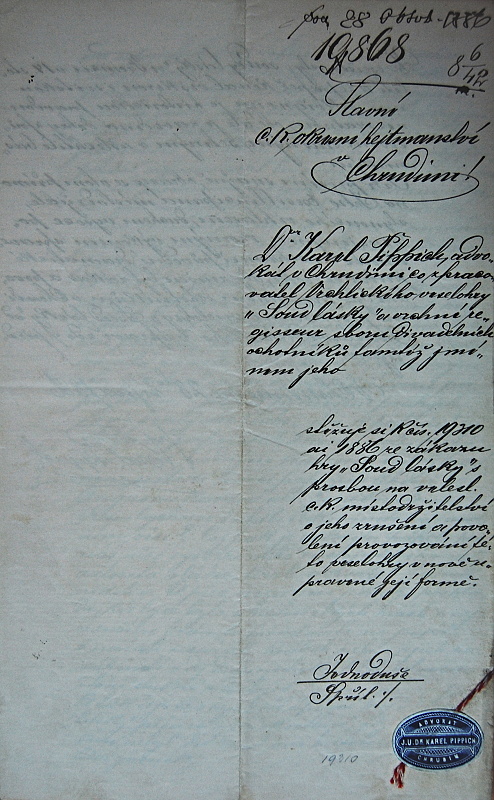 19868
8 6/42
Slavní
c.k. okresní hejtmanství
v
Chrudimi!
Dr Karel Pippich, advo-
kát v Chrudimi co zpraco-
vatel Vrchlického veselohry
„Soud lásky" a vrchní re-
gisseur sboru divadelních
ochotníků tamtéž jmé-
nem jeho
stěžuje si k čís. 19210
ai 1886 ze zákazu
hry „Soud lásky" s
prosbou na velesl.
c.k. místodržitelství
o jeho zrušení a povo-
lení provozování té-
to veselohry v nově u-
pravené její formě.
Jednoduše
19210
ADVOKÁT
J.U.DR KAREL PIPPICH
CHRUDIM